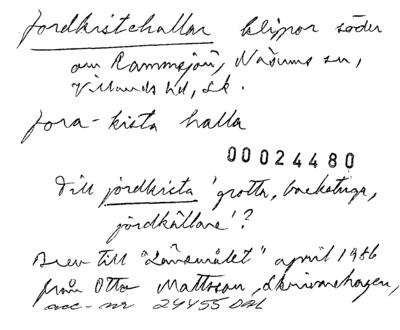 jordkristehallar klippor söder
om Rammsjön, Näsums sn,
Villands hd, Sk.
jora-kista halla
00024480
Till jordkrista 'grotta, backstuga,
jordkällare'?
Brev till "Länsmålet" april 1986
från Otto Mattsson, Skrivarehagen,
acc-nr 24455 DAL